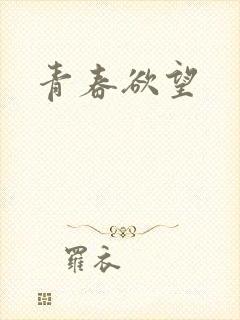 青春欲望
羅衣